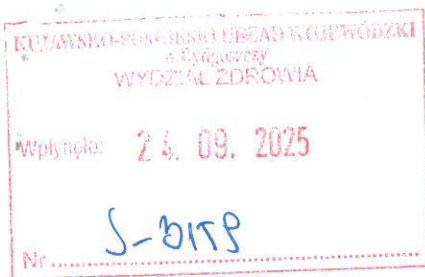 KUJAWSKO-POMORSKI URZĄD WOJEWÓDZKI
w Bydgoszczy
WYDZIAŁ ZDROWIA
Wpłynęło: 24. 09. 2025
Nr